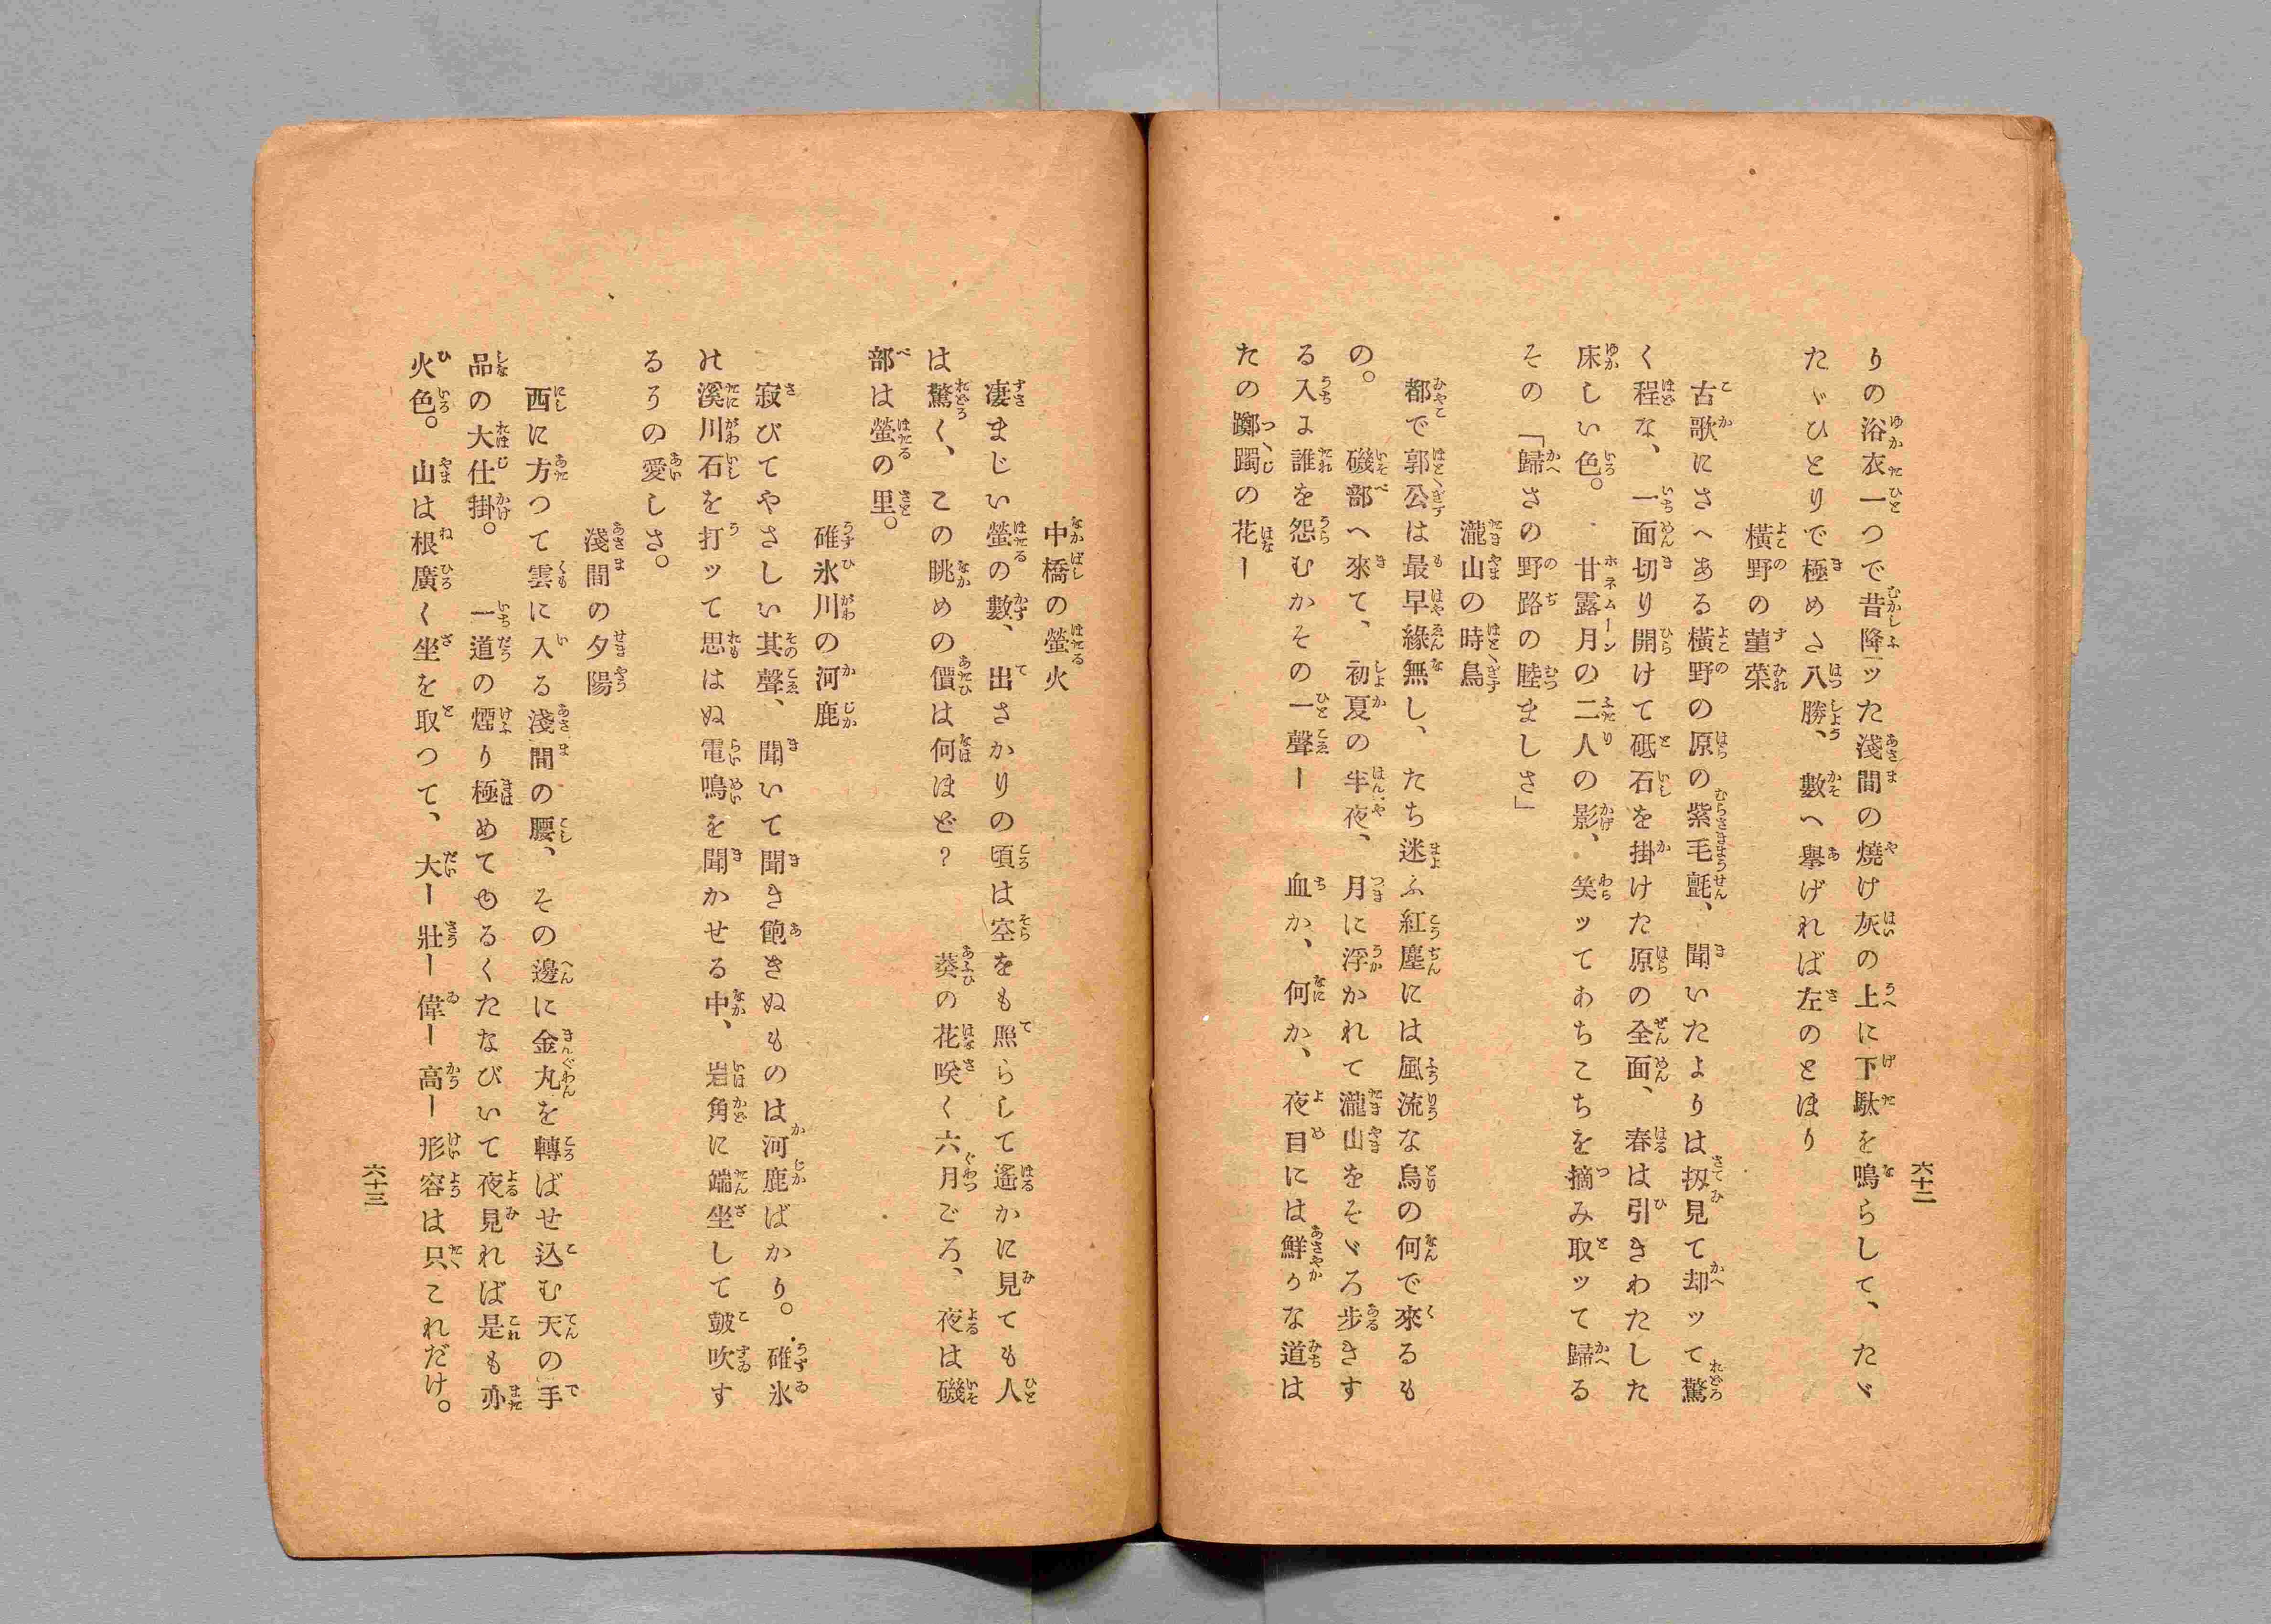 六十二
りの浴衣一つで昔降ッた淺間の燒け灰の上に下駄を鳴らして、たゞ
たゞひとりで極めさ八勝、數へ擧げれば左のとほり
橫野の菫菜
古歌にさへある橫野の原の紫毛氈、聞いたよりは扨見て却ッて驚
く程な、一面切り開けて砥石を掛けた原の全面、春は引きわたした
床しい色。甘露月の二人の影、笑ッてあちこちを摘み取ッて歸る
その「歸さの野路の睦ましさ」
瀧山の時鳥
都で郭公は最早緣無し、たち迷ふ紅塵には風流な鳥の何で來るも
の。磯部へ來て、初夏の半夜、月に浮かれて瀧山をそゞろ步きす
る入よ誰を怨むかその一聲ー血か、何か、夜目には鮮かな道は
たの躑躅の花ー
中橋の螢火
凄まじい螢の數、出さかりの頃は空をも照らして遙かに見ても人
は驚く、この眺めの價は何ほど?葵の花咲く六月ごろ、夜は磯
部は螢の里。
碓氷川の河鹿
寂びてやさしい其聲、聞いて聞き飽きぬものは河鹿ばかり。碓氷
の溪川石を打ッて思はぬ電鳴を聞かせる中、岩角に端坐して皷吹す
るうの愛しさ。
淺間の夕陽
西に方つて雲に入る淺間の腰、その邊に金丸を轉ばせ込む天の手
品の大仕掛。一道の煙り極めてゆるくたなびいて夜見れば是も亦
火色。山は根廣く坐を取つて、大ー壯ー偉ー高ー形容は只これだけ。
六十三